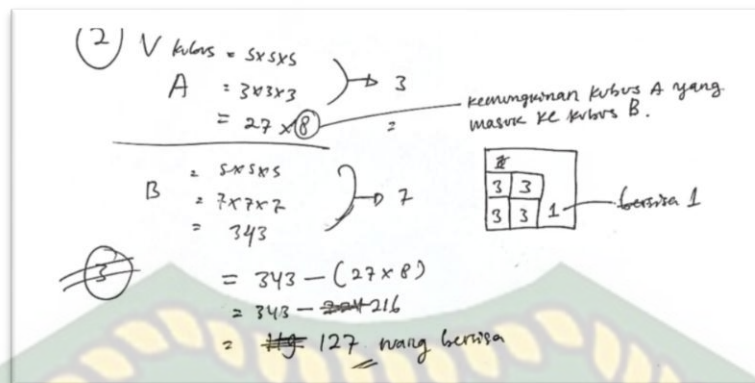 ② V kubus = 5x5x5
A = 3x3x3 → 3
= 27 x 8
=
kemungkinan kubus A yang
masuk ke kubus B.
B = 5x5x5
= 7x7x7 → 7
= 343
3 3
3 3 1
bersisa 1
3
= 343 - (27 x 8)
= 343 - 216
= 127 ruang bersisa